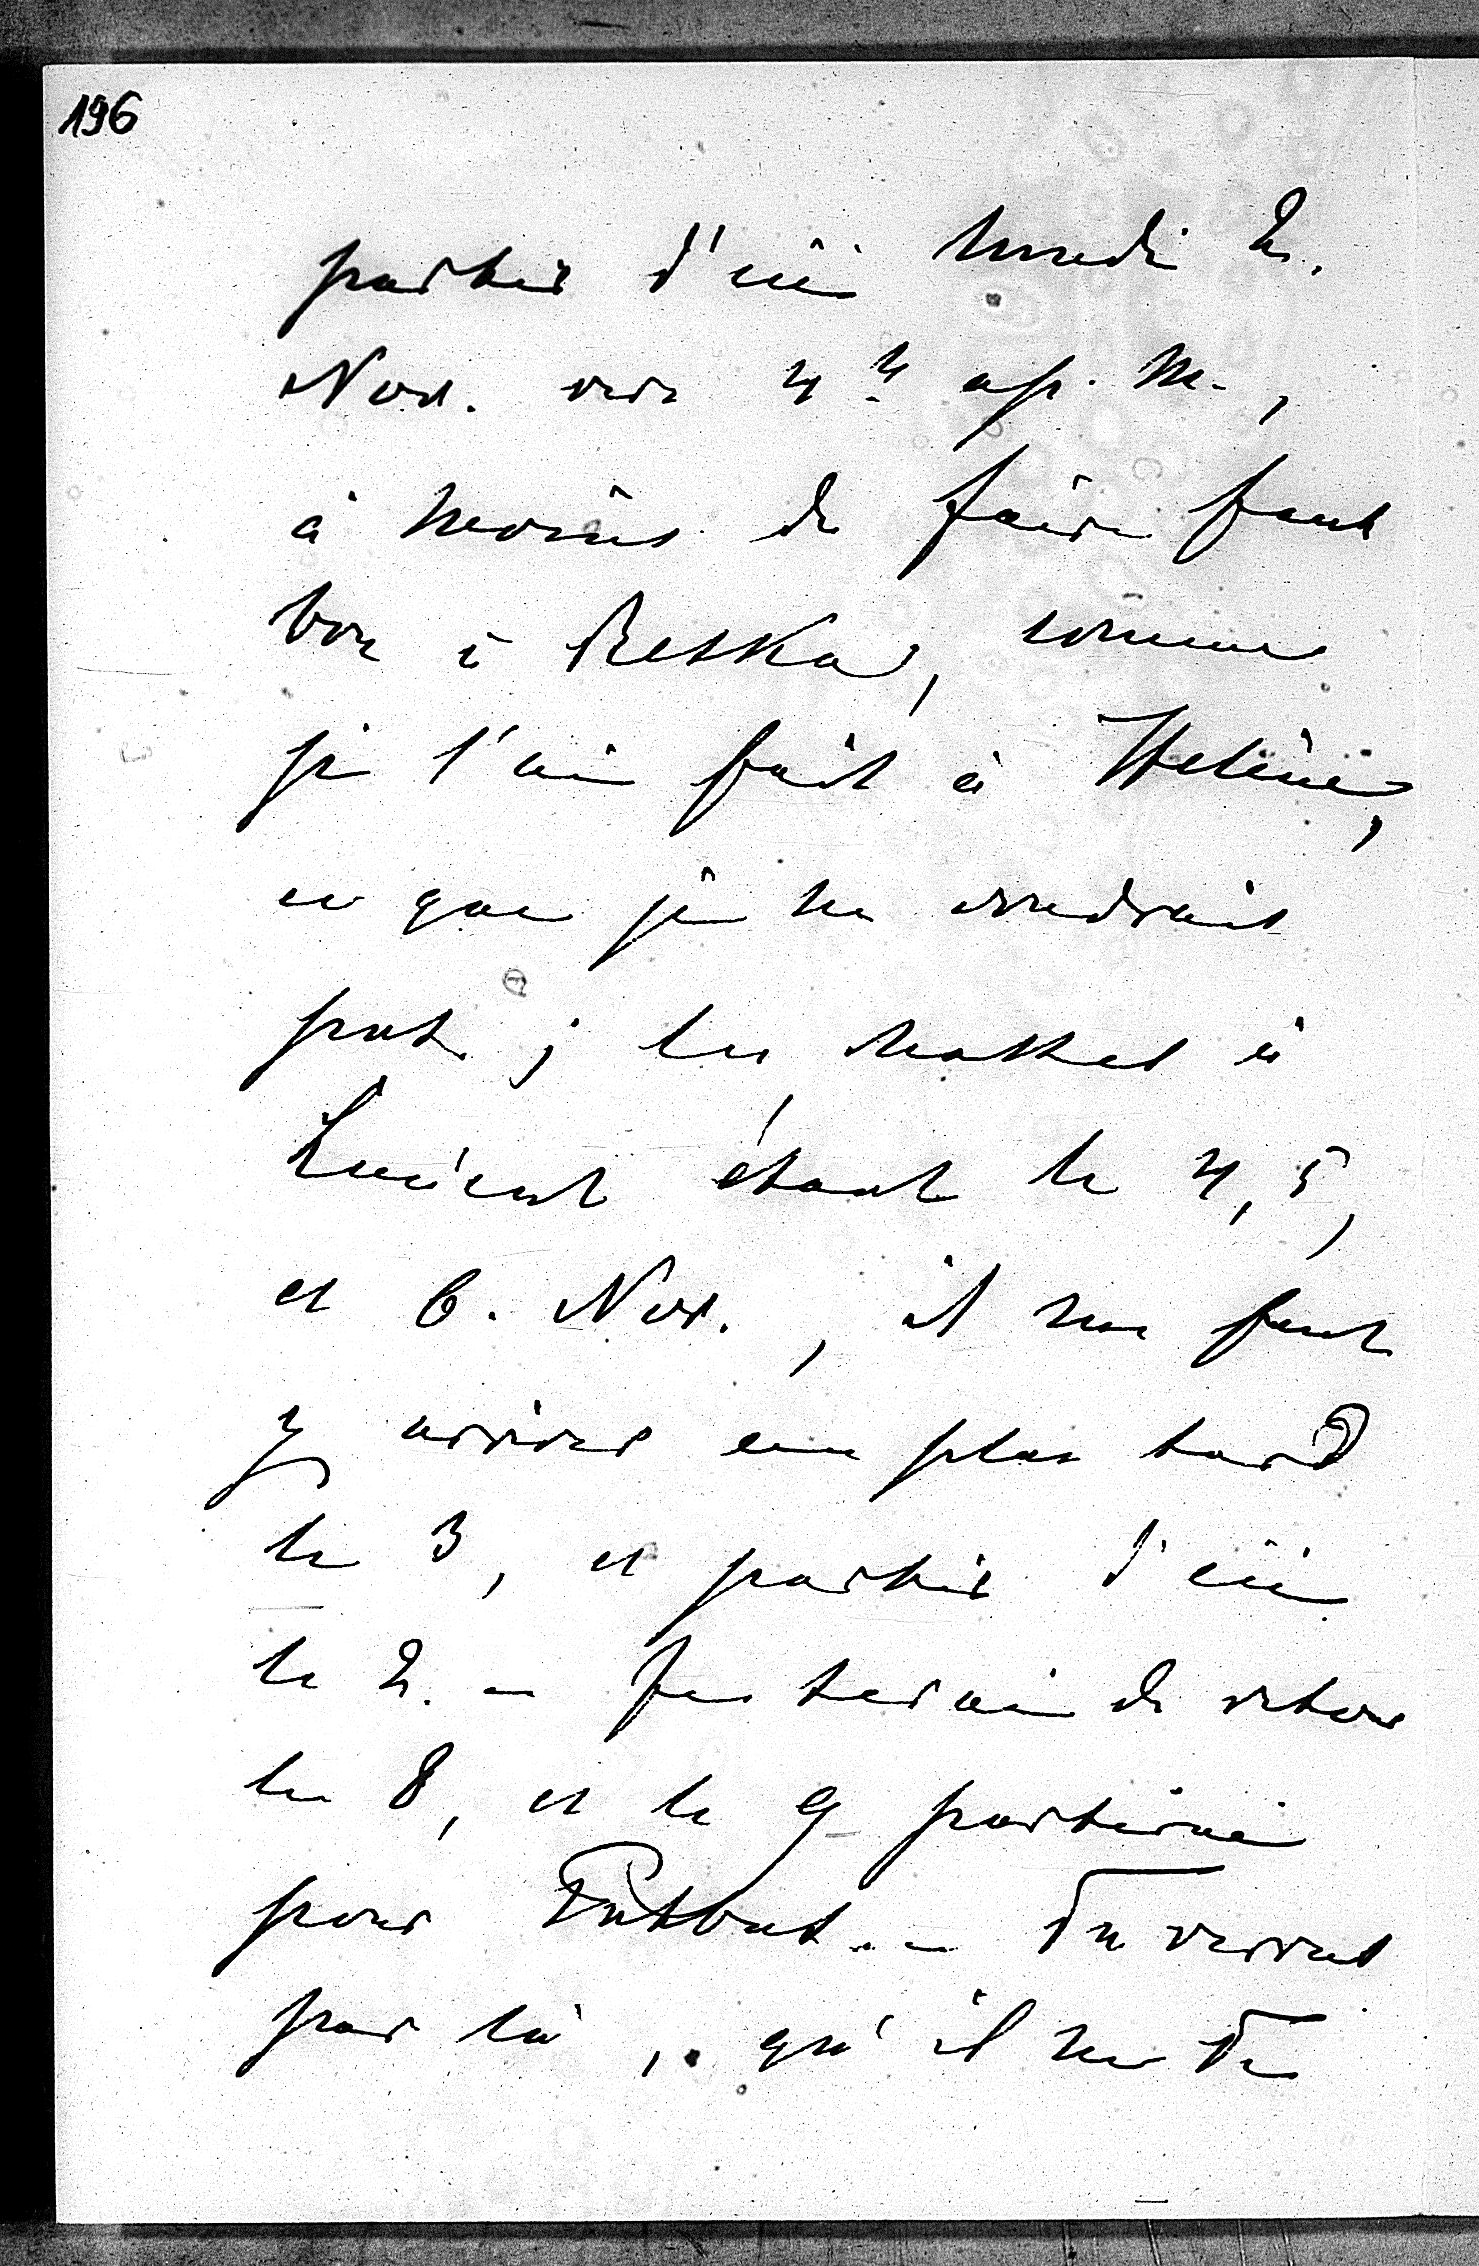 196
partir d'ici lundi 2.
Nov. vers 4 h ap. m.,
à moins de faire faux
bon à Betka, comme
je l'ai fait à Helène,
ce que je ne voudrais
pas ; les chasses à
étant le 4, 5,
et 6. Nov., il me faut
y arriver au plus tard
le 3, et partir d'ici
le 2. – Je serai de retour
le 8, et le 9 partirai
pour Putbus. – Tu verras
par là, qu'il ne te